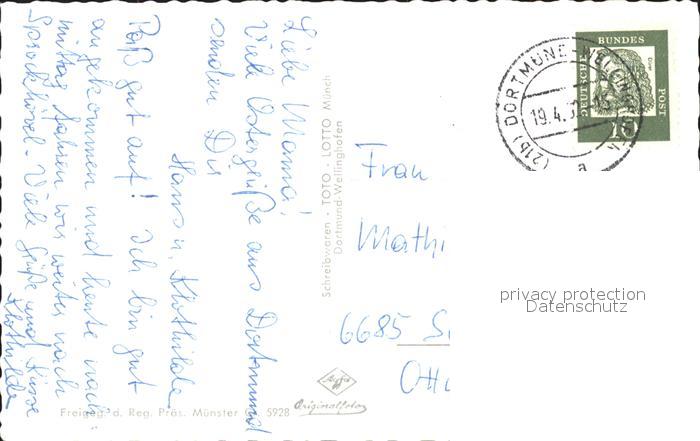 Liebe Mama!
Viele Ostergrüße aus Dortmund
senden Dir
Hans u. Klothilde
Paß gut auf! Ich bin gut
angekommen und heute nach-
mittag fahren wir weiter nach
Sprockhövel. Viele Grüße und Küsse
Klothilde
Freigeg. d. Reg. Präs. Münster 5928
Schreibwaren · TOTO · LOTTO Münch
Dortmund-Wellinghofen
Agfa
Originalfoto
Frau
Mathi
6685
Ott
DEUTSCHE BUNDES POST
15
(21b) DORTMUND-WELLINGHOFEN
19.4.
a
privacy protection
Datenschutz